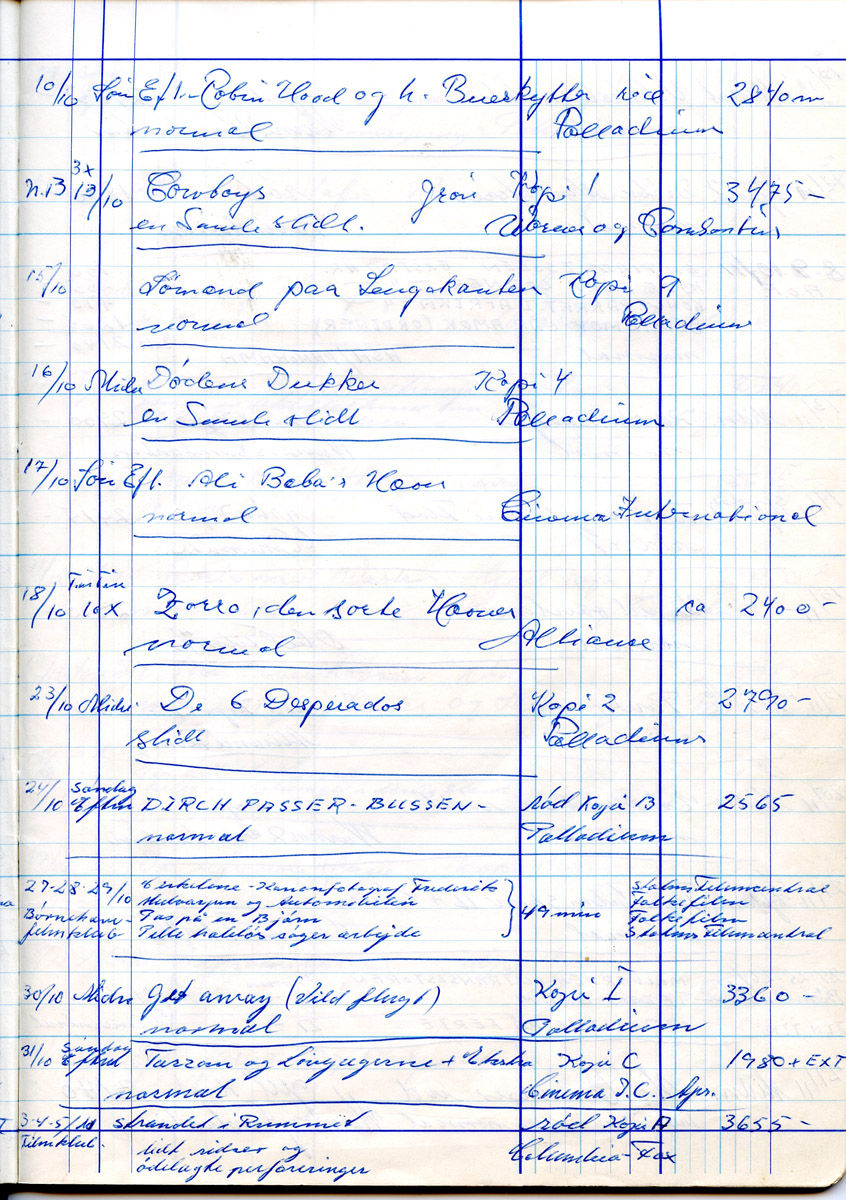 10/10 Søn Eft. Robin Hood og h. Bueskytter rød 2840 m
normal Palladium
3x
13/10 Cowboys grøn Kopi 1 3475 -
en Smule slidt. Warner og Constantin
15/10 Sømænd paa Sengekanten Kopi 9
normal Palladium
16/10 Midn Dødens Dukker Kopi 4
en Smule slidt Palladium
17/10 Søn Eft. Ali Baba's Hævn
normal Cinema International
Tin Tin
18/10 10x Zorro, den sorte Hævner ca 2400 -
normal Alliance
23/10 Midn. De 6 Desperados Kopi 2 2790 -
slidt Palladium
Søndag
24/10 Eftm DIRCH PASSER - BUSSEN - rød Kopi B 2565
normal Palladium
27-28-29/10 Cirkelene - Kanonfotograf Frederik Statens Filmcentral
og Automobilen Folkefilm
Børnehave- Pas på en Bjørn 49 min Folkefilm
filmklub Pelle haleløs søger arbejde Statens Filmcentral
30/10 Midn Get away (Vild flugt) Kopi I 3360 -
normal Palladium
Søndag
31/10 Eftmd Tarzan og Løvejægerne + Ekstra Kopi C 1980 + EXT
normal Cinema I.C.
3-4-5/11 strandet i Rummet rød Kopi A 3655 -
Filmklub. lidt ridser og Columbia-Fox
ødelagte perforeringer